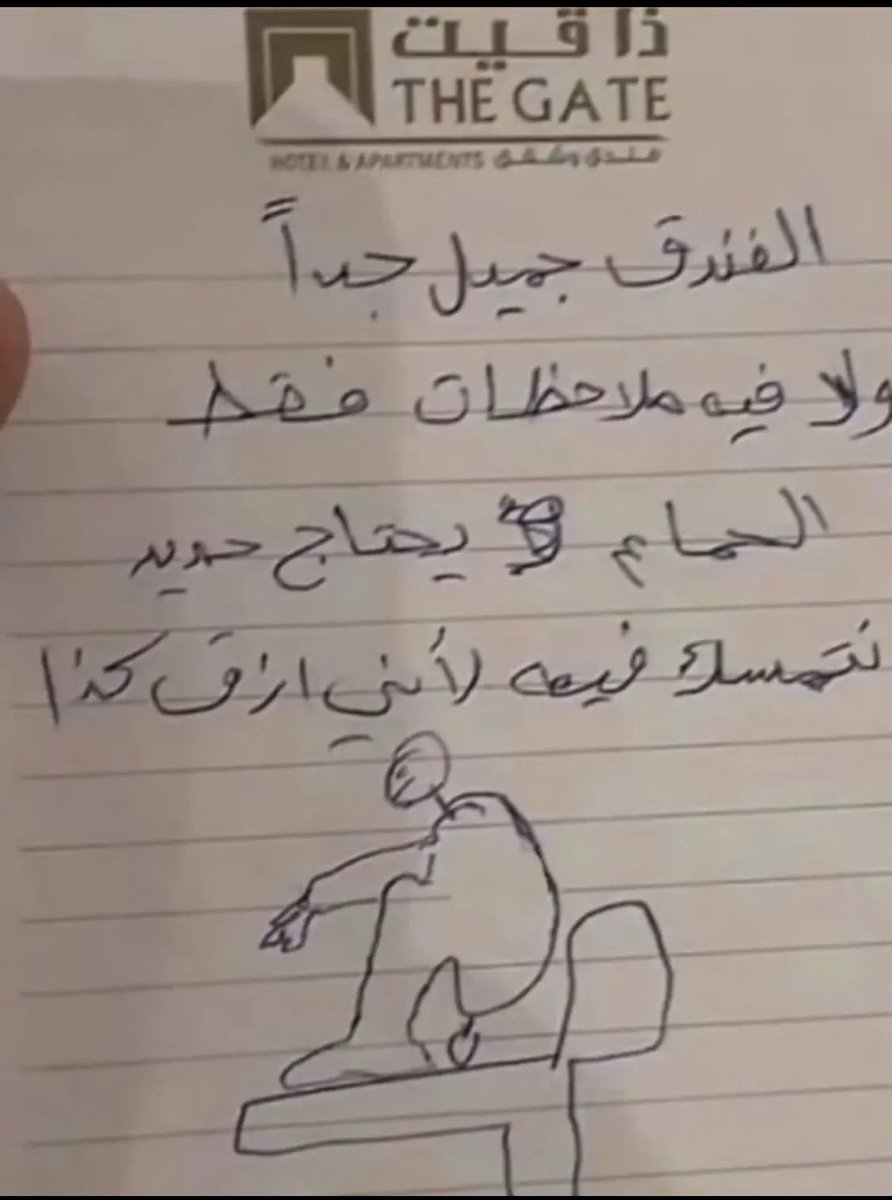 ذا قيت
THE GATE
HOTEL & APARTMENTS فندق وشقق
الفندق جميل جداً
ولا فيه ملاحظات فقط
الحمام يحتاج حديد
نتمسك فيه لأنني ازق كذا